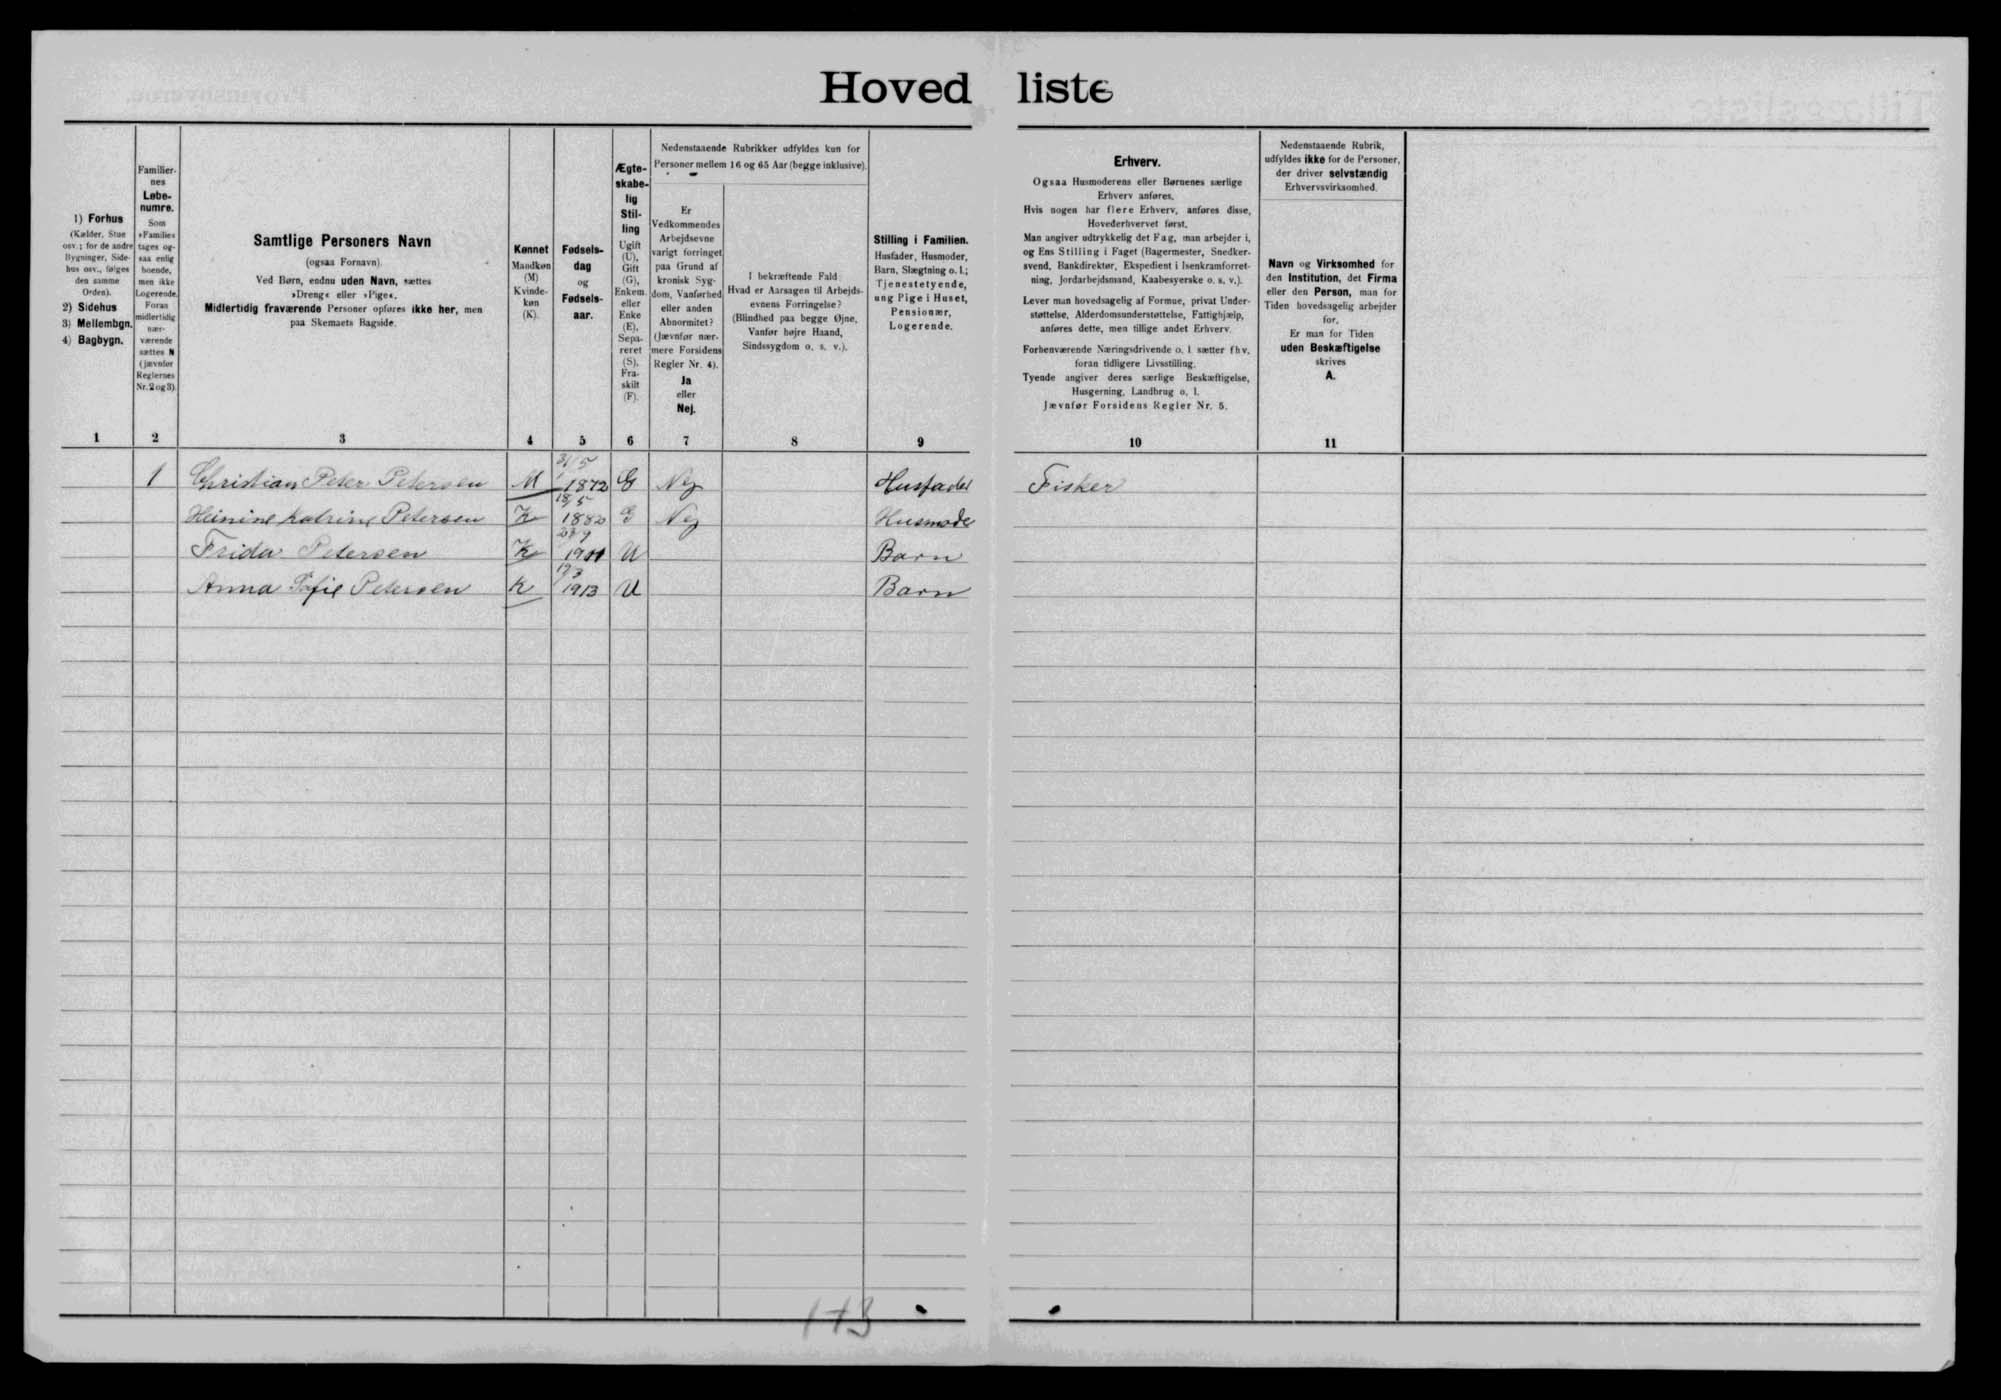 Hoved liste
1) Forhus
(Kælder, Stue
osv.; for de andre
Bygninger, Side-
hus osv., følges
den samme
Orden).
2) Sidehus
3) Mellembgn.
4) Bagbygn.
Familier-
nes
Løbe-
numre.
Som
»Familie«
tages og-
saa enlig
boende,
men ikke
Logerende.
Foran
midlertidig
nær-
værende
sættes N
(jævnfør
Reglernes
Nr. 2 og 3).
Samtlige Personers Navn
(ogsaa Fornavn).
Ved Børn, endnu uden Navn, sættes
»Dreng« eller »Pige«.
Midlertidig fraværende Personer opføres ikke her, men
paa Skemaets Bagside.
Kønnet
Mandkøn
(M)
Kvinde-
køn
(K).
Fødsels-
dag
og
Fødsels-
aar.
Ægte-
skabe-
lig
Stil-
ling
Ugift
(U),
Gift
(G),
Enkem.
eller
Enke
(E),
Sepa-
reret
(S),
Fra-
skilt
(F).
Nedenstaaende Rubrikker udfyldes kun for
Personer mellem 16 og 65 Aar (begge inklusive).
Er
Vedkommendes
Arbejdsevne
varigt forringet
paa Grund af
kronisk Syg-
dom, Vanførhed
eller anden
Abnormitet?
(Jævnfør nær-
mere Forsidens
Regler Nr. 4).
Ja
eller
Nej.
I bekræftende Fald
Hvad er Aarsagen til Arbejds-
evnens Forringelse?
(Blindhed paa begge Øjne,
Vanfør højre Haand,
Sindssygdom o. s. v.).
Stilling i Familien.
Husfader, Husmoder,
Barn, Slægtning o. l.;
Tjenestetyende,
ung Pige i Huset,
Pensionær,
Logerende.
Erhverv.
Ogsaa Husmoderens eller Børnenes særlige
Erhverv anføres.
Hvis nogen har flere Erhverv, anføres disse,
Hovederhvervet først.
Man angiver udtrykkelig det Fag, man arbejder i,
og Ens Stilling i Faget (Bagermester, Snedker-
svend, Bankdirektør, Ekspedient i Isenkramforret-
ning, Jordarbejdsmand, Kaabesyerske o. s. v.).
Lever man hovedsagelig af Formue, privat Under-
støttelse, Alderdomsunderstøttelse, Fattighjælp,
anføres dette, men tillige andet Erhverv.
Forhenværende Næringsdrivende o. l. sætter fhv.
foran tidligere Livsstilling.
Tyende angiver deres særlige Beskæftigelse,
Husgerning, Landbrug o. l.
Jævnfør Forsidens Regler Nr. 5.
Nedenstaaende Rubrik,
udfyldes ikke for de Personer,
der driver selvstændig
Erhvervsvirksomhed.
Navn og Virksomhed for
den Institution, det Firma
eller den Person, man for
Tiden hovedsagelig arbejder
for.
Er man for Tiden
uden Beskæftigelse
skrives
A.
1 2 3 4 5 6 7 8 9 10 11
1 Christian Peter Petersen M 31/5 1872 G Nej Husfader Fisker
Heinine Katrine Petersen K 18/5 1882 G Nej Husmoder
Frida Petersen K 23/9 1911 U Barn
Anna Sofie Petersen K 1913 U Barn